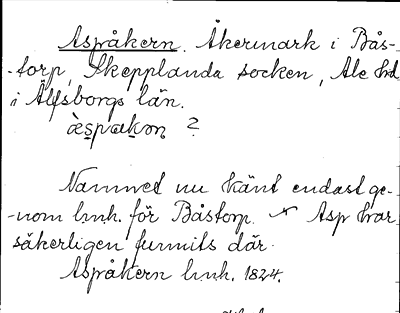 Aspråkern. Åkermark i Bås-
-torp, Skepplanda socken, Ale hd
i Älfsborgs län.
àsprakɔn ?
Namnet nu känt endast ge-
-nom l.m.h. för Båstorp. Asp har
säkerligen funnits där.
Aspråkern l.m.h. 1824.